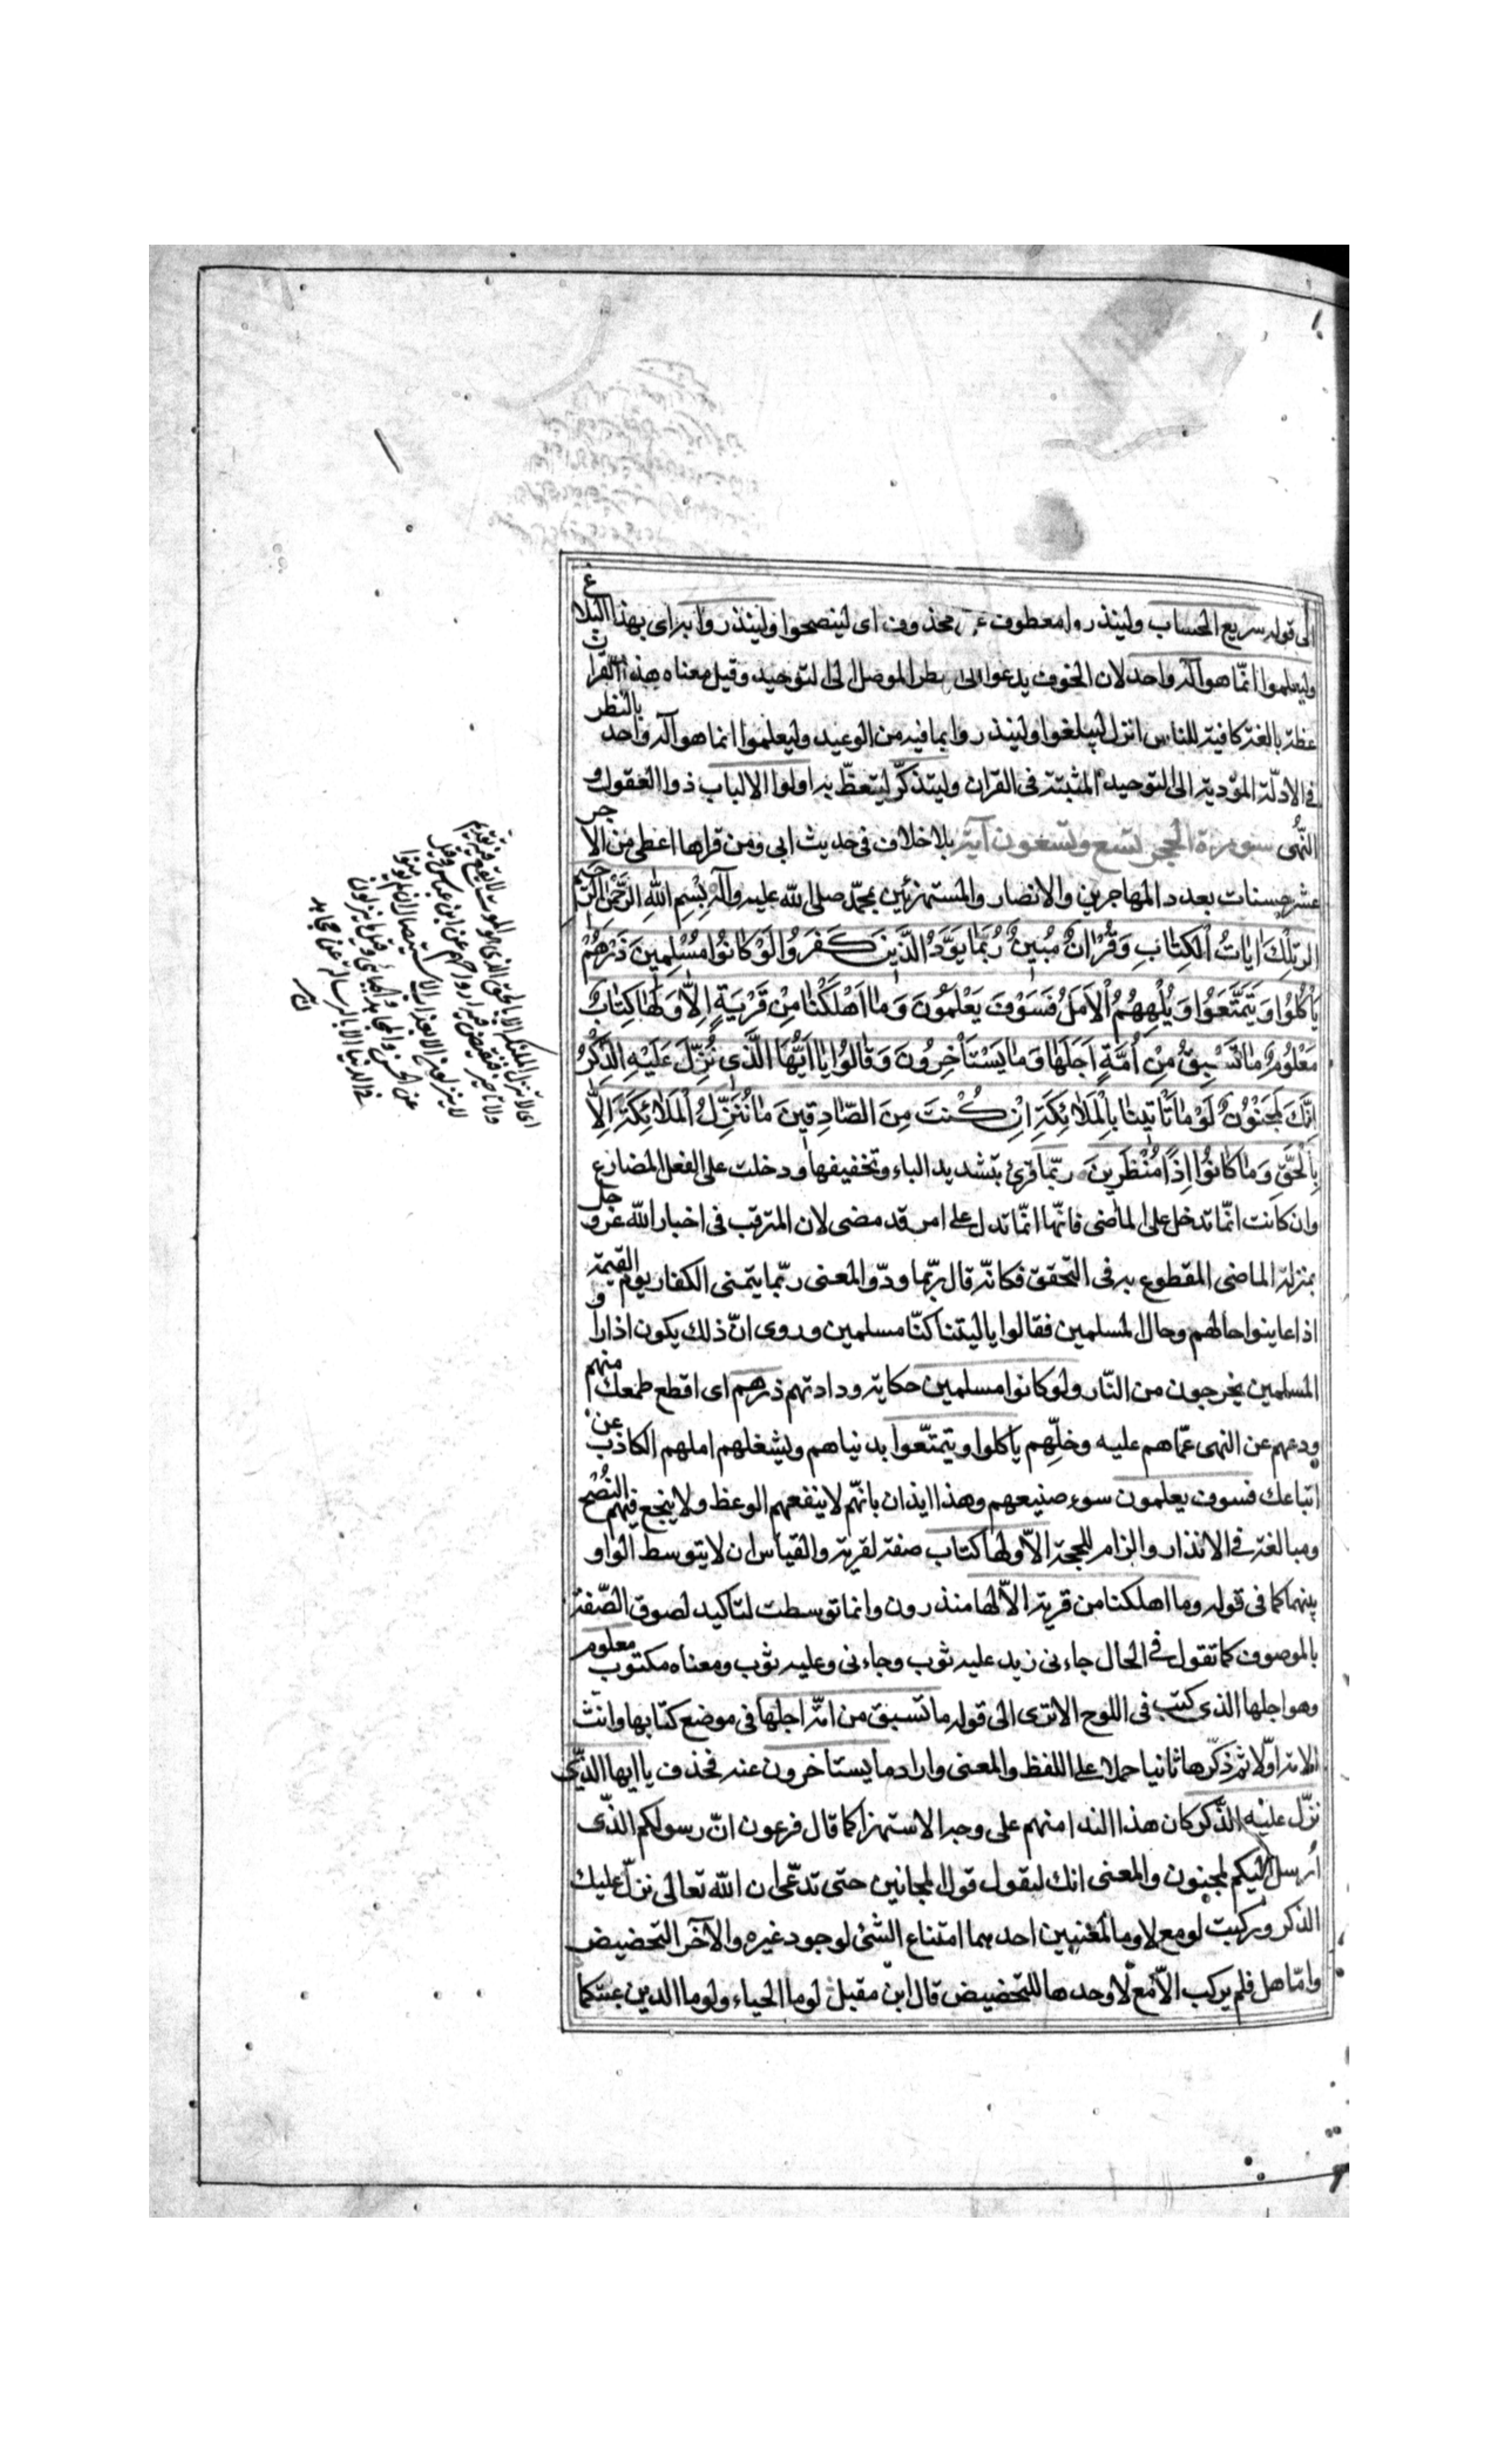 الى قوله سريع الحساب ولينذروا معطوف على محذوف اى لينصحوا ولينذروا به اى بهذا البلاغ
وليعلموا انّما هو آله واحد لان الخوف يدعوا الى النظر الموصل الى التوحيد وقيل معناه هذا القرآن
عظة بالغة كافية للناس انزل ليبلغوا ولينذروا بما فيه من الوعيد وليعلموا انما هو آله واحد بالنظر
فى الادلّة المؤدية الى التوحيد المثبتة فى القران وليتذكّر ليتعظّ به اولوا الالباب ذووا العقول و
النّهى سورة الحجر تسع وتسعون آية بلا خلاف فى حديث ابى ومن قراها اعطى من الاجر
عشر حسنات بعدد المهاجرين والانصار والمستهزئين بمحمّد صلى الله عليه وآله بِسْمِ اللهِ الرَّحْمٰنِ الرَّحيمِ
الر تِلْكَ اٰيَاتُ الْكِتٰابِ وَقُرْاٰنٍ مُبينٍ رُبَمٰا يَوَدُّ الَّذينَ كَفَرُوا لَوْ كٰانُوا مُسْلِمينَ ذَرْهُمْ
يَأْكُلُوا وَيَتَمَتَّعُوا وَيُلْهِهِمُ الْاَمَلُ فَسَوْفَ يَعْلَمُونَ وَمٰا اَهْلَكْنٰا مِنْ قَرْيَةٍ اِلّٰا وَلَهٰا كِتٰابٌ
مَعْلُومٌ مٰا تَسْبِقُ مِنْ اُمَّةٍ اَجَلَهٰا وَمٰا يَسْتَأْخِرُونَ وَقٰالُوا يٰا اَيُّهَا الَّذى نُزِّلَ عَلَيْهِ الذِّكْرُ
اِنَّكَ لَمَجْنُونٌ لَوْ مٰا تَأْتينٰا بِالْمَلٰائِكَةِ اِنْ كُنْتَ مِنَ الصّٰادِقينَ مٰا نُنَزِّلُ الْمَلٰائِكَةَ اِلّٰا
بِالْحَقِّ وَمٰا كٰانُوا اِذًا مُنْظَرينَ ربّما قرئ بتشديد الباء وتخفيفها ودخلت على الفعل المضارع
وان كانت انّما تدخل على الماضى فانّها انّما تدل على امر قد مضى لان المترقب فى اخبار الله عز وجل
بمنزلة الماضى المقطوع به فى التحقق فكانّه قال ربّما ودّ والمعنى ربّما يتمنى الكفار يوم القيمة
اذا عاينوا حالهم وحال المسلمين فقالوا يا ليتنا كنّا مسلمين وروى انّ ذلك يكون اذا راوا
المسلمين يخرجون من النّار ولو كانوا مسلمين حكاية ودادتهم ذرهم اى اقطع طمعك منهم
ودعهم عن النهى عمّا هم عليه وخلّهم ياكلوا ويتمتّعوا بدنياهم ويشغلهم املهم الكاذب عن
اتباعك فسوف يعلمون سوء صنيعهم وهذا ايذان بانّهم لا ينفعهم الوعظ ولا ينجع فيهم النُصْح
ومبالغة فى الانذار والزام للحجة الاّ ولها كتاب صفة لقرية والقياس ان لا يتوسط الواو
بينهما كما فى قوله وما اهلكنا من قرية الاّ لها منذرون وانما توسطت لتاكيد لصوق الصّفة
بالموصوف كما تقول فى الحال جاءنى زيد عليه ثوب وجاءنى وعليه ثوب ومعناه مكتوب معلوم
وهو اجلها الذى كتب فى اللوح الاترى الى قوله ما تسبق من امّة اجلها فى موضع كتابها وانّث
الامة اوّلا ثم ذكّرها ثانيا حملا على اللفظ والمعنى واراد ما يستاخرون عنه فحذف يا ايها الذّى
نزّل عليه الذّكر كان هذا الندا منهم على وجه الاستهزا كما قال فرعون انّ رسولكم الذّى
اُرسل اليكم لمجنون والمعنى انك لتقول قول المجانين حتى تدّعى ان الله تعالى نزّل عليك
الذكر وركبت لو مع لا وما لمعنيين احدهما امتناع الشئ لوجود غيره والآخر التحضيض
وامّا هل فلم يركب الاّ مع لا وحدها للتحضيض قال ابن مقبل لوما الحياء ولوما الدين عبتكما
اى لا تنزل الملئكة الا بالحق الذى هو الموت لا يقع فيه تقديم
ولا تاخير فتقبض فيه ارواحهم عن ابن عباس وقيل
لا ينزلون الا بعذاب الاستيصال ان لم يؤمنوا
عن الحسن والمجاهد والجبائى وقيل ما ينزلون
فى الدنيا الا بالرسالة عن مجاهد